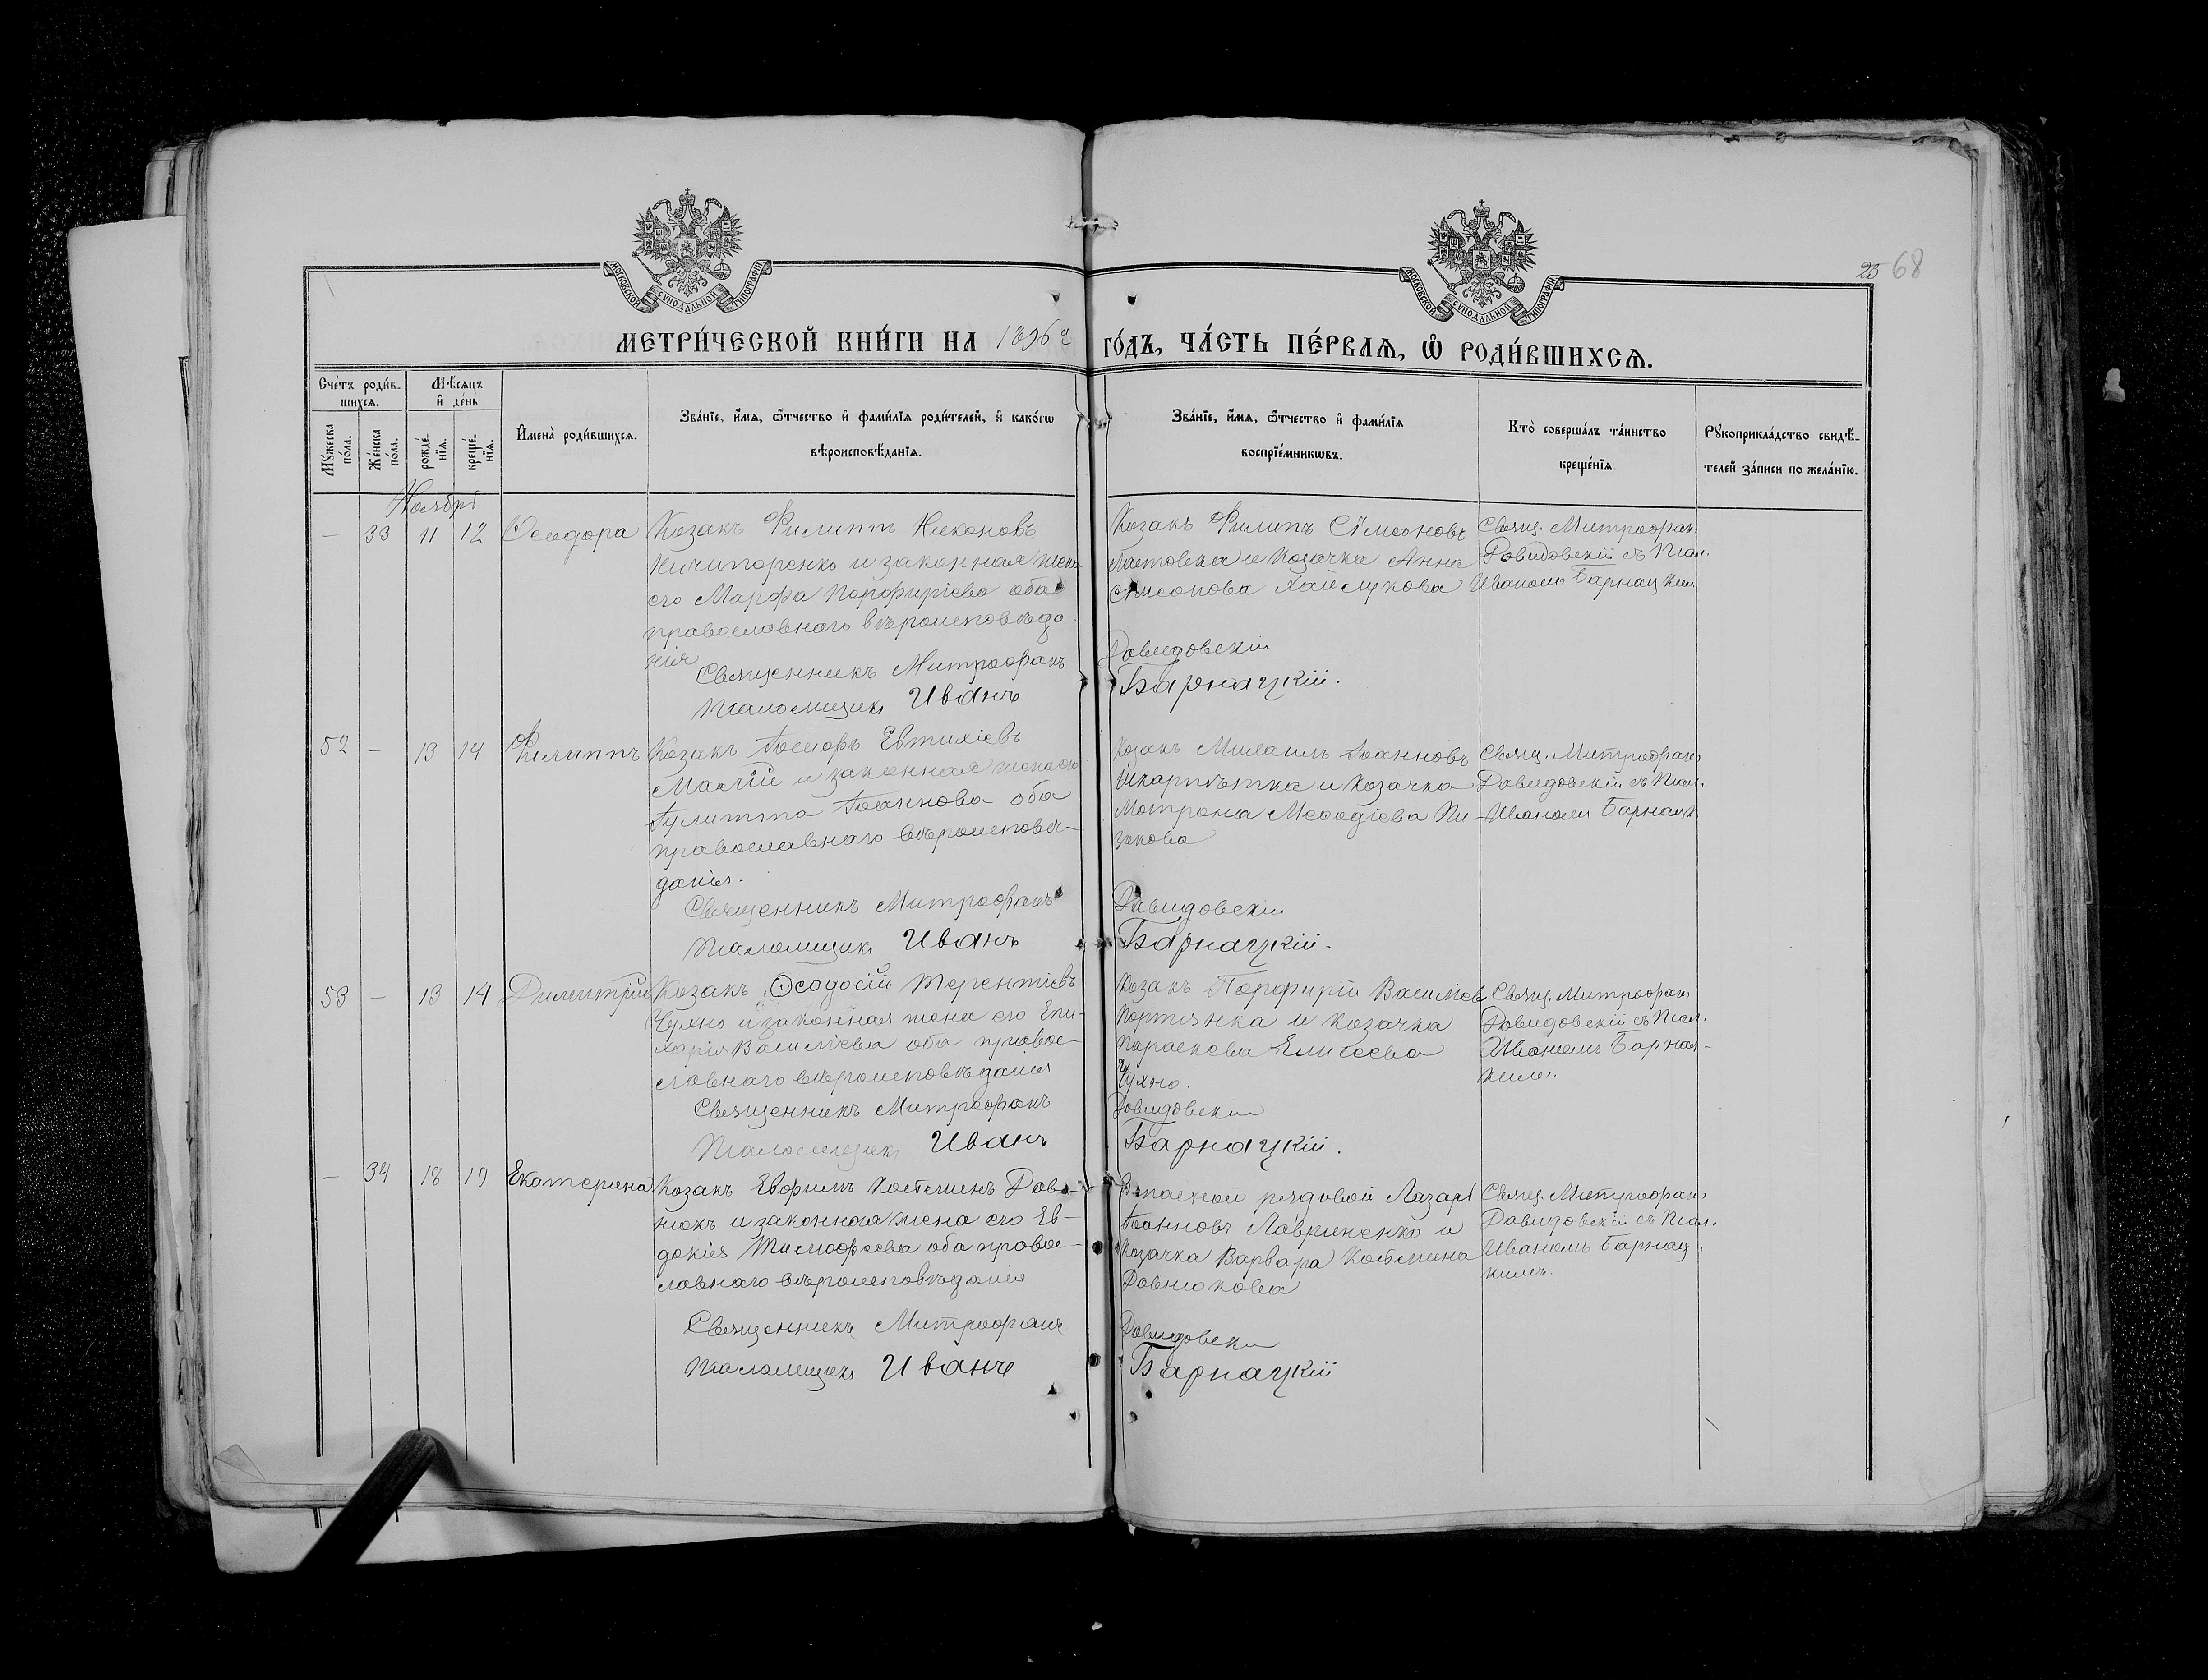 МОСКОВСКОЙ СѴНОДАЛЬНОЙ ТИПОГРАФІИ
МОСКОВСКОЙ СѴНОДАЛЬНОЙ ТИПОГРАФІИ
23 68
МЕТРИ́ЧЕСКОЙ КНИ́ГИ НА 1896 г
ГО́ДЪ, ЧА́СТЬ ПЕ́РВАѦ, Ѽ РОДИ́ВШИХСѦ.
Сче́тъ роди́в-
шихсѧ.
Мѣ́сѧцъ
и҆ де́нь
Мꙋ́жеска по́ла.
Же́нска по́ла.
рожде́-нїѧ.
креще́-нїѧ.
И҆мена̀ роди́вшихсѧ.
Зва́нїе, и҆́мѧ, ѻ҆́тчество и҆ фами́лїѧ роди́телей, и҆ како́гѡ
вѣроисповѣ́данїѧ.
Зва́нїе, и҆́мѧ, ѻ҆́тчество и҆ фами́лїѧ
воспрїе́мникѡвъ.
Кто̀ соверша́лъ та́инство
креще́нїѧ
Рꙋкоприкла́дство свидѣ́-
телей за́писи по жела́нїю.
Ноябрь
— 33 11 12 Ѳеодора
Козакъ Филиппъ Никоновъ
Ничипоренко и законная жена
его Марфа Порфиріева оба
православнаго вѣроисповѣда
нія
Священникъ Митрофанъ
Псаломщикъ Иванъ
Козакъ Филипъ Сѵмеоновъ
и Козачка Анна
Давидовскій
Барнацкій.
Свящ. Митрофан
Давидовскій съ Псал.
Иваномъ Барнацким
52 — 13 14 Филиппъ
Козакъ Іосифъ Евтихіевъ
Малій и законная жена его
Іулитта Іоаннова оба
православнаго вѣроисповѣ-
данія.
Священникъ Митрофанъ
Псаломщикъ Иванъ
Козакъ Михаилъ Іоанновъ
Шкарпѣтка и Козачка
Мотрона Меѳодіева Пи-
Давидовскій
Барнацкій.
Свящ. Митрофанъ
Давидовскій съ Псал.
Иваномъ Барнацк
53 — 13 14 Димитрій
Козакъ Ѳеодосій Терентіевъ
Чухно и законная жена его Епи-
харія Василіева оба правос-
славнаго вѣроисповѣданія
Священникъ Митрофанъ
Псаломщикъ Иванъ
Козакъ Порфирій Василіев
Портянка и козачка
Параскева Елисеева
Чухно.
Давидовскій
Барнацкій.
Свящ. Митрофан
Давидовскій съ Псал.
Иваномъ Барнац-
кимъ.
— 34 18 19 Екатерина
Козакъ Евфимъ Костинъ Дав-
нюкъ и законная жена его Ев-
докія Тимофеева оба правос-
лавнаго вѣроисповѣданія
Священникъ Митрофанъ
Псаломщикъ Иванъ
рядовой Лазарь
Іоанновъ Лавриненко и
Козачка Варвара
Давнюкова
Давидовскій
Барнацкій
Свящ. Митрофанъ
Давидовскій съ Псал.
Иваномъ Барнац
кимъ.